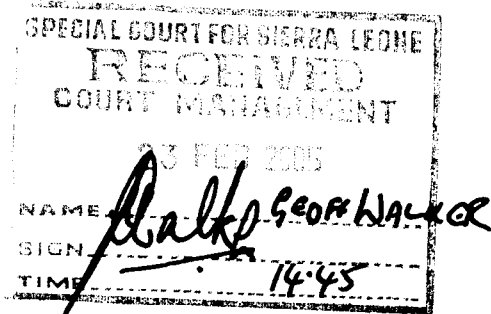 SPECIAL COURT FOR SIERRA LEONE
RECEIVED
COURT MANAGEMENT
FEB 2005
NAME GEOFF WALKER
SIGN
TIME 14.45